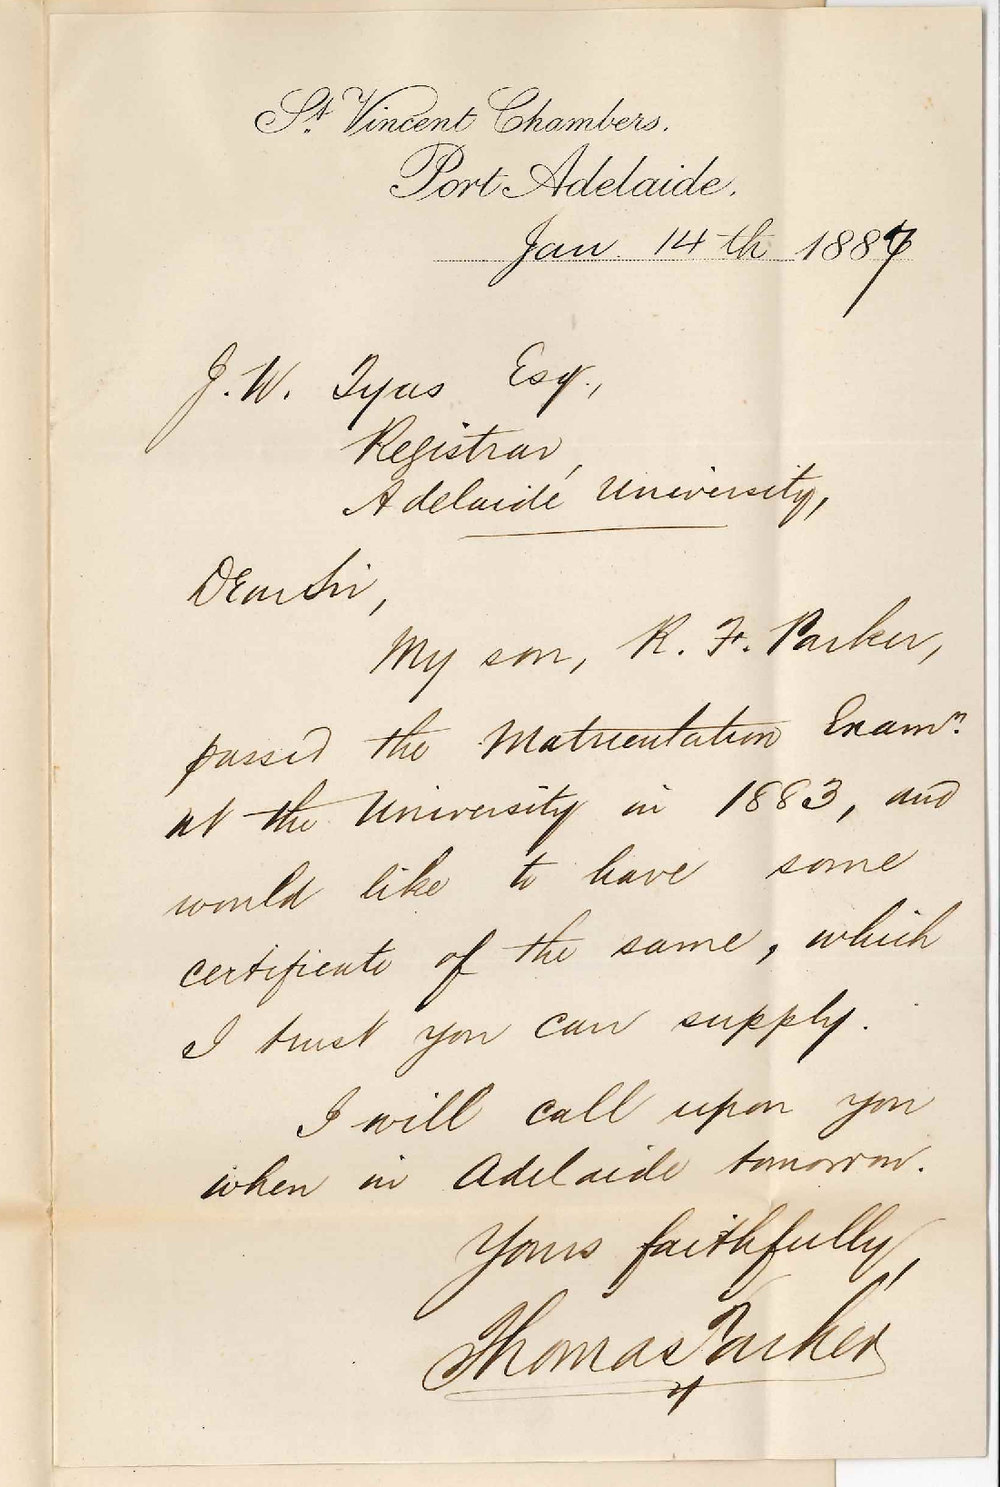 St. Vincent Chambers.
Port Adelaide.
Jan 14th 1887
J. W. Tyas Esq.,
Registrar,
Adelaide University,
Dear Sir,
My son, R. F. Parker,
passed the Matriculation Examn.
at the University in 1883, and
would like to have some
certificate of the same, which
I trust you can supply.
I will call upon you
when in Adelaide tomorrow.
Yours faithfully,
Thomas Parker